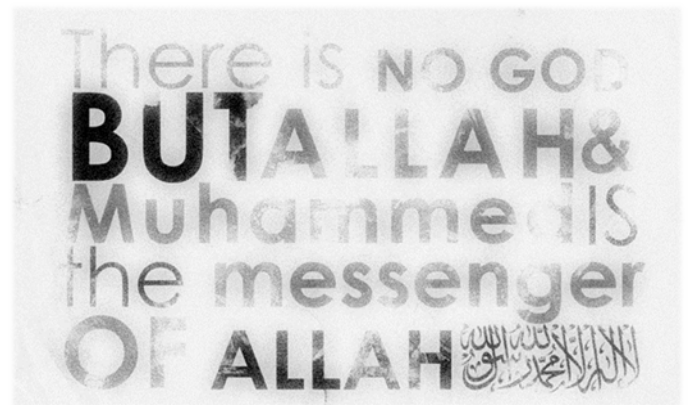 There is NO GOD
BUT ALLAH &
Muhammed IS
the messenger
OF ALLAH لا اله الا الله محمد رسول الله